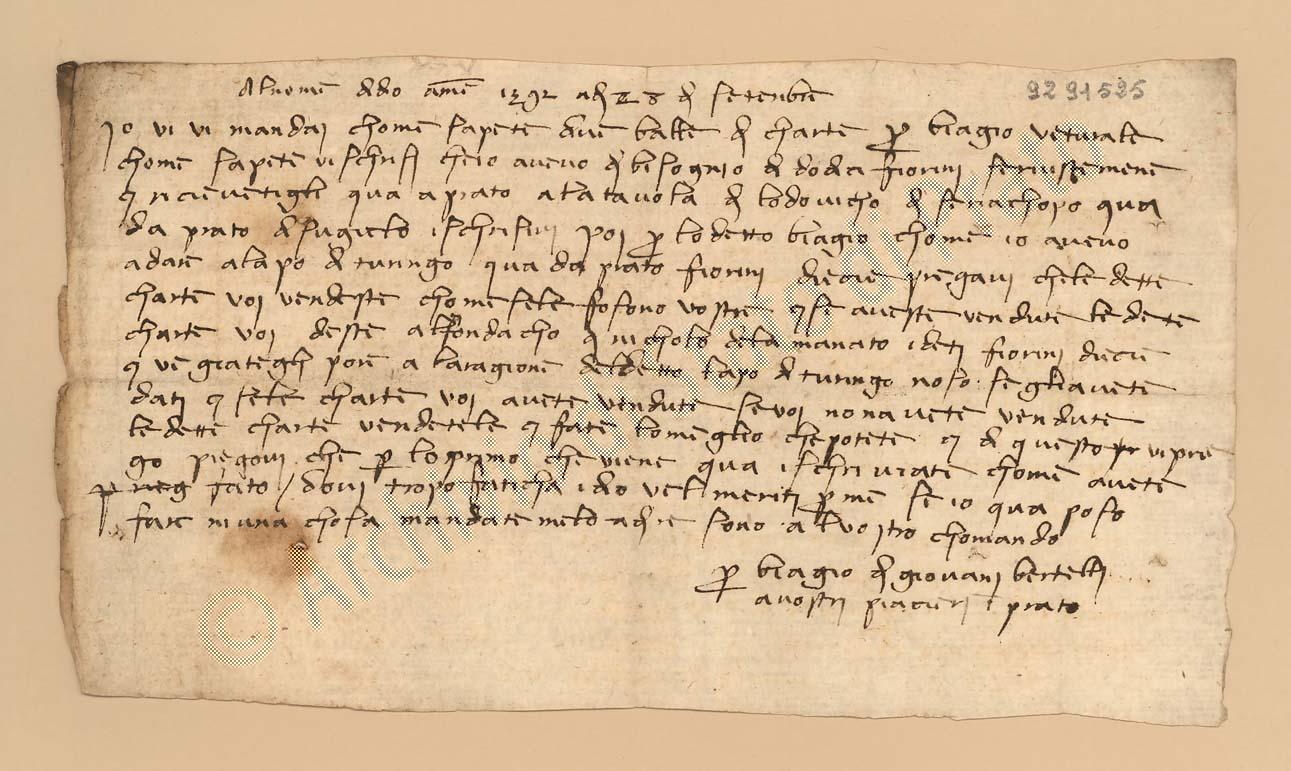 Al nome di dio ame 1392 adi 28 di setenbre
9291535
Io vi vi mandai chome sapete due balle di charte p biagio veturale
chome sapete vi schrisi cheio avevo di bisognio di dodici fiorini servistemene
e ricievetigli qua a prato alatavola di lodovicho di seriachopo qua
da prato di sugiello ischrisivi poi p lo detto biagio chome io avevo
a dare a lapo di turingo qua da prato fiorini diecie pregavi chele dette
charte voi vendeste chome sele fosono vostre e se aveste vendute le dette
charte voi deste al fondacho di nicholo delamanato ideti fiorini diecie
e vegiategli pore a laragione del detto lapo di turingo noso segliavete
dati e sele charte voi avete vendute se voi nonavete vendute
le dette charte vendetele e fate lo meglio chepotete e di questo vi pre
go piegovi che p lo primo cheviene qua ischriviate chome avete
fato / dovi tropo faticha idio vel meriti p me se io qua poso
fare niuna chosa mandatemelo a dire sono al vostro chomando
p biagio di giovani bertelli
avostri piacieri i prato
© Archivio di Stato